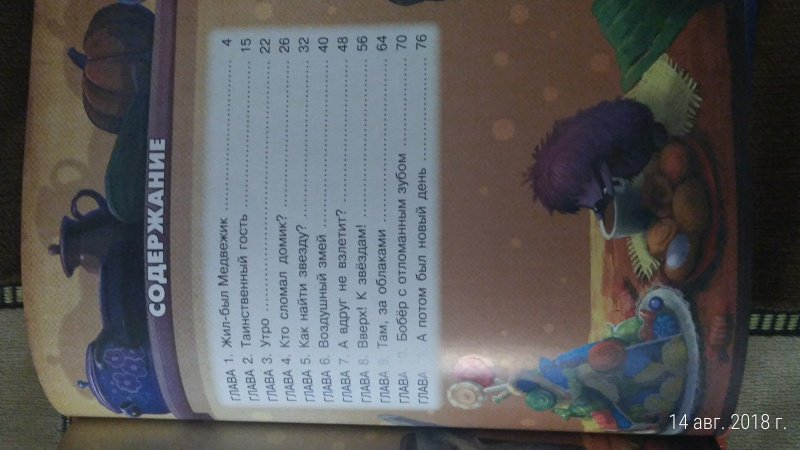 СОДЕРЖАНИЕ
ГЛАВА 1. Жил-был Медвежик 4
ГЛАВА 2. Таинственный гость 15
ГЛАВА 3. Утро 22
ГЛАВА 4. Кто сломал домик? 26
ГЛАВА 5. Как найти звезду? 32
ГЛАВА 6. Воздушный змей 40
ГЛАВА 7. А вдруг не взлетит? 48
ГЛАВА 8. Вверх! К звёздам! 56
ГЛАВА 9. Там, за облаками 64
ГЛАВА Бобёр с отломанным зубом 70
ГЛАВА А потом был новый день 76
14 авг. 2018 г.